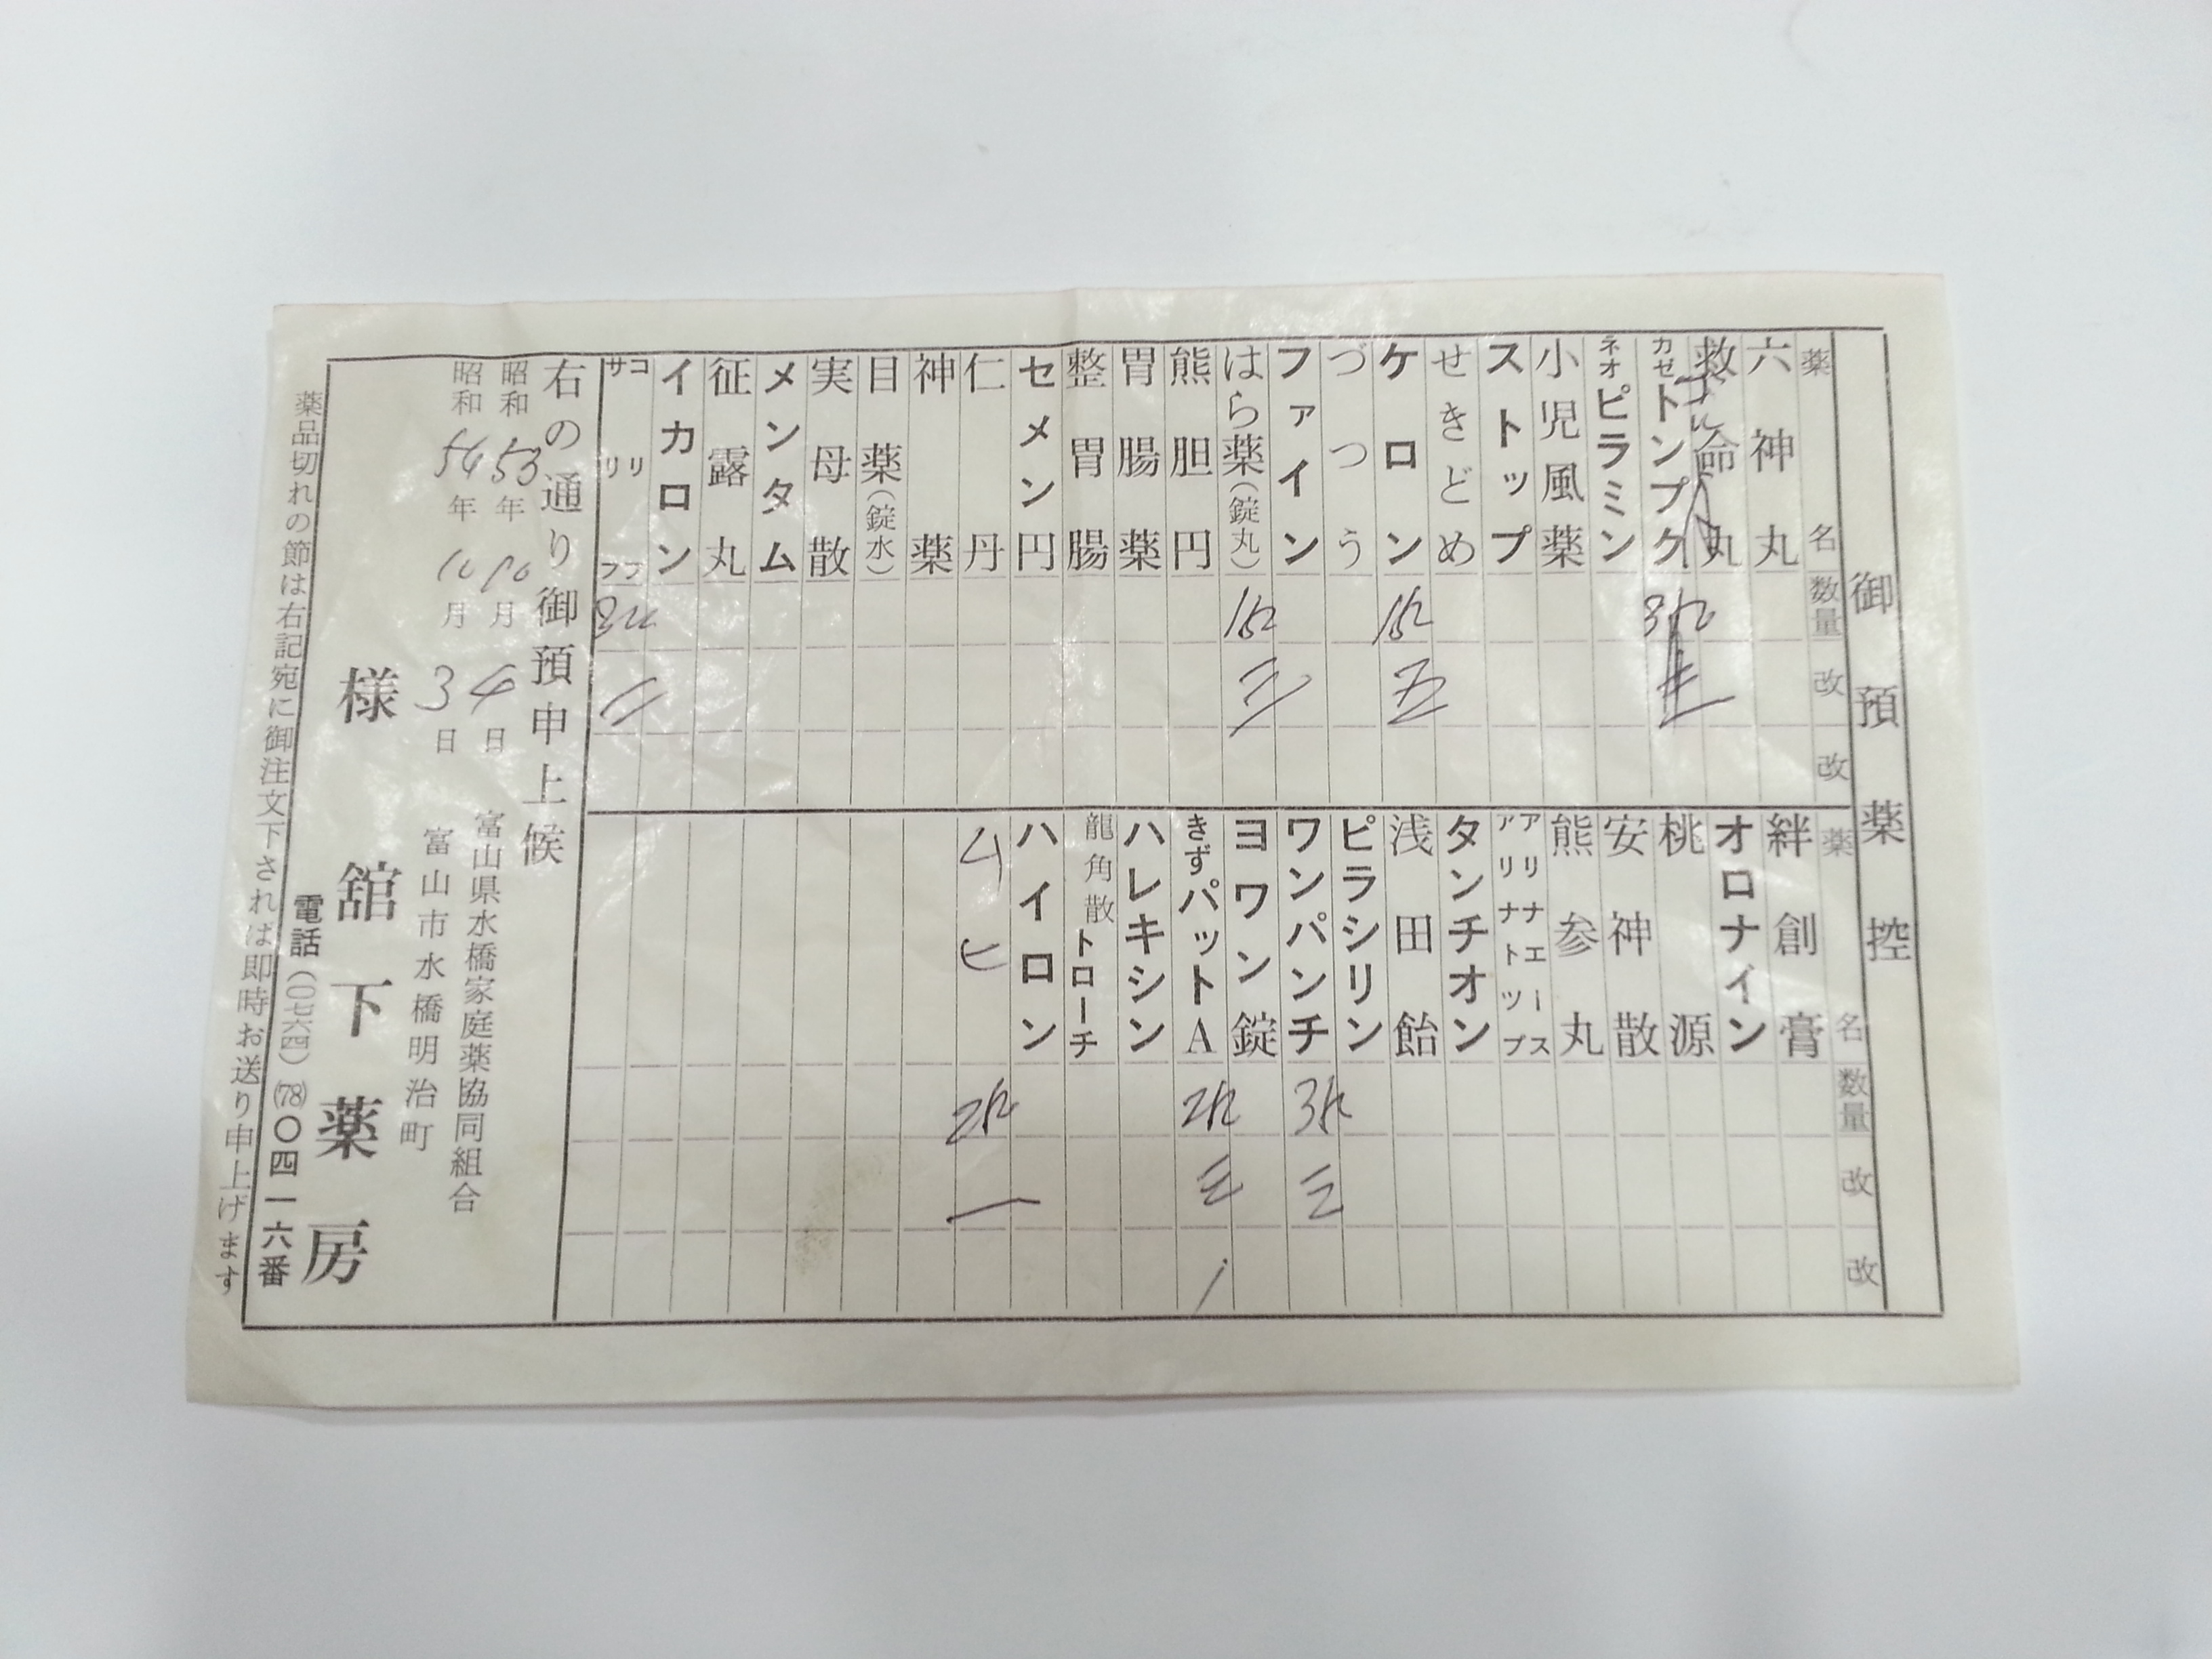 御預薬控
薬名
数量
改
改
六神丸
救命丸
カゼトンプク
ネオピラミン
小児風薬
ストップ
せきどめ
ケロン
五
づつう
ファイン
はら薬(錠丸)
三
熊胆円
胃腸薬
整胃腸
セメン円
仁丹
神薬
目薬(錠水)
実母散
メンタム
征露丸
イカロン
コリフ
サリフ
二
薬名
数量
改
改
絆創膏
オロナイン
桃源
安神散
熊参丸
アリナエース
アリナトップ
タンチオン
浅田飴
ピラシリン
ワンパンチ
三
ヨワン錠
きずパットA
三
ハレキシン
龍角散トローチ
ハイロン
ムヒ
一
右の通り御預申上候
昭和53年10月4日
昭和54年10月3日
富山県水橋家庭薬協同組合
富山市水橋明治町
様 舘下薬房
電話(〇七六四)(78)〇四一六番
薬品切れの節は右記宛に御注文下されば即時お送り申上げます